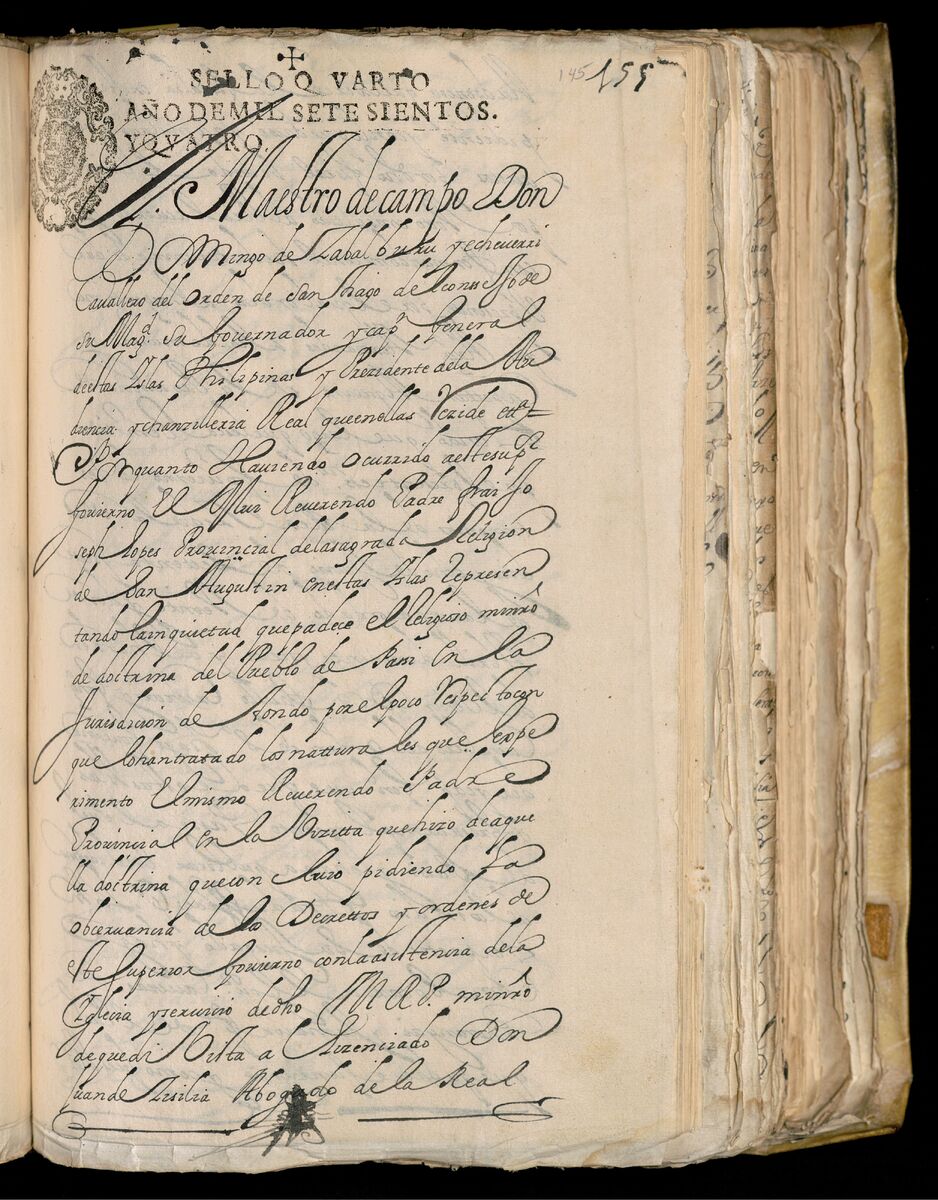 145 155
SELLO QVARTO
AÑO DE MIL SETESIENTOS.
YQVATRO.
El Maestro de campo Don
Domingo de Zabalburu yecheuerri
Cavallero del orden de San tiago del consejo de
su Magd. su Governador ycapn. General
deestas Yslas Philipinas y Prezidente dela Au
diencia ychanzilleria Real queenellas rezide etta.
Por quanto Haviendo ocurrido aestesupor.
govierno El Mui Reverendo Padre frai Jo
seph lopes Provincial delasagrada Religion
de San Augustin enestas Yslas represen
tando lainquietud quepadece el religioso minro
de doctrina del Pueblo de Passi en la
Jurisdicion de Arondo porelpoco respectocon
que lohantratado losnattura les que expe
rimento Elmismo Reverendo Padre
Provincial en la Vizitta quehizo deaque
lla doctrina quecon cluio pidiendo la
obceruancia de los Decrettos y ordenes de
este Superior Govierno conlaasistencia dela
Yglecia yservicio dedho M R P. minro
dequedi Vista a Lizenciado Don
Juande Abogado de la Real